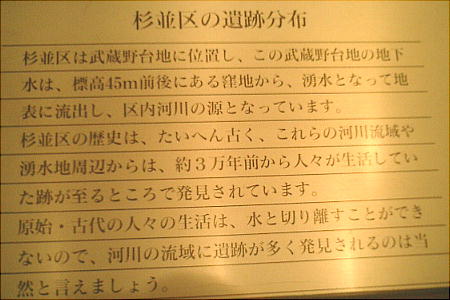 杉並区の遺跡分布
杉並区は武蔵野台地に位置し、この武蔵野台地の地下
水は、標高45m前後にある窪地から、湧水となって地
表に流出し、区内河川の源となっています。
杉並区の歴史は、たいへん古く、これらの河川流域や
湧水地周辺からは、約３万年前から人々が生活してい
た跡が至るところで発見されています。
原始・古代の人々の生活は、水と切り離すことができ
ないので、河川の流域に遺跡が多く発見されるのは当
然と言えましょう。